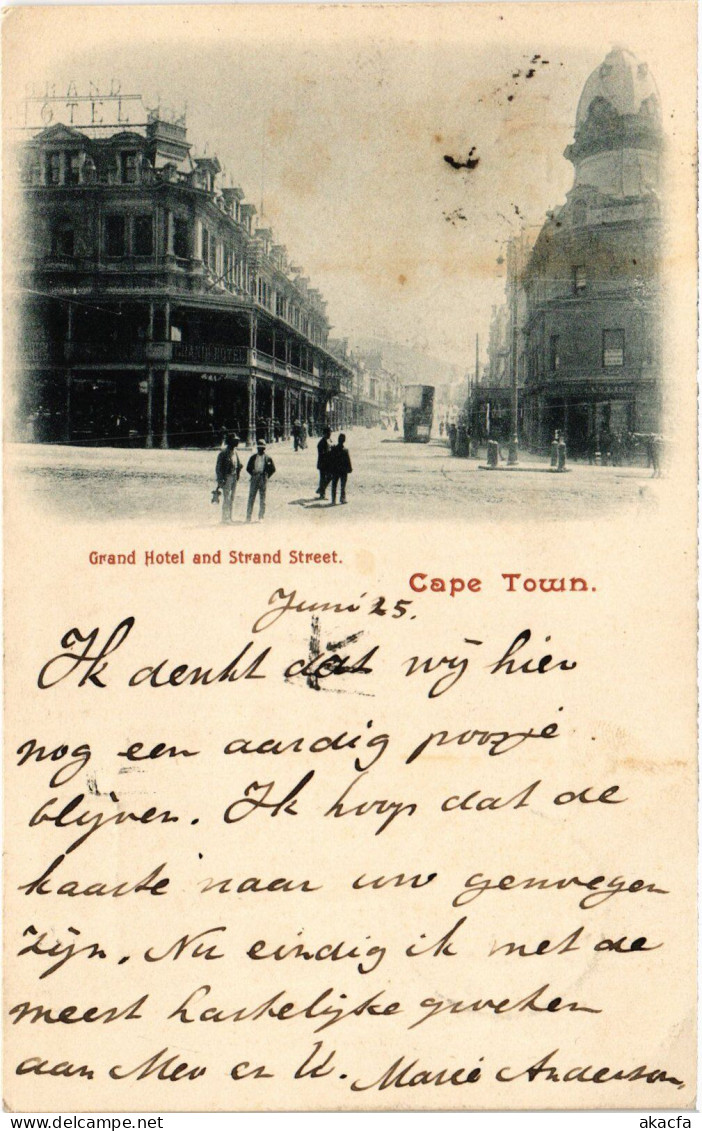 GRAND
HOTEL
GRAND HOTEL
Grand Hotel and Strand Street.
Cape Town.
Juni 25.
Ik denkt dat wij hier
nog een aardig poozje
blijven. Ik hoop dat de
kaarte naar uw genoegen
zijn. Nu eindig ik met de
meest hartelijke groeten
aan Mev en U. Marie Anderson.
www.akacfa.Net
akacfa